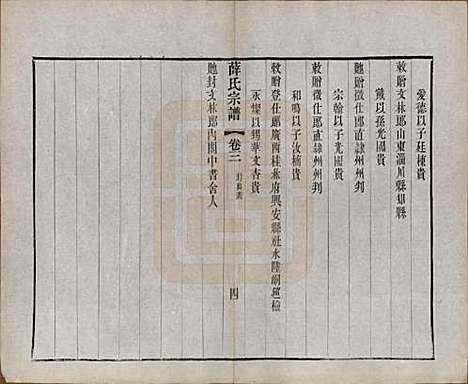 愛德以子廷棟貴
敕贈文林郎山東淄川縣知縣
戴以孫光國貴
貤贈徵仕郎直隸州州判
宗翰以子光國貴
敕贈徵仕郎直隸州州判
和鳴以子汝楠貴
敕贈登仕郎廣西桂林府興安縣 水陸 巡檢
永燦以甥華文杏貴
貤封文林郎內閣中書舍人
薛氏宗譜 卷三 封典表 四